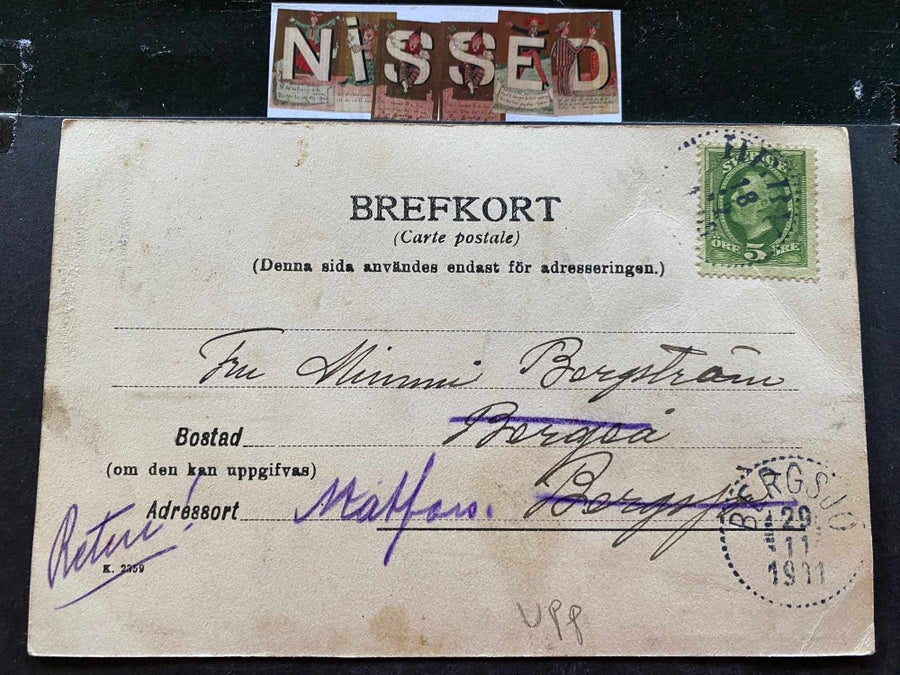 NISSED
BREFKORT
(Carte postale)
(Denna sida användes endast för adresseringen.)
SVERIGE
18
ÖRE 5 ÖRE
Fru Minmi Bergström
Bostad Bergså
(om den kan uppgifvas)
Adressort Matfors. Bergsjö
Retur!
K. 2359
BERGSJÖ
29
11
1911
Upp